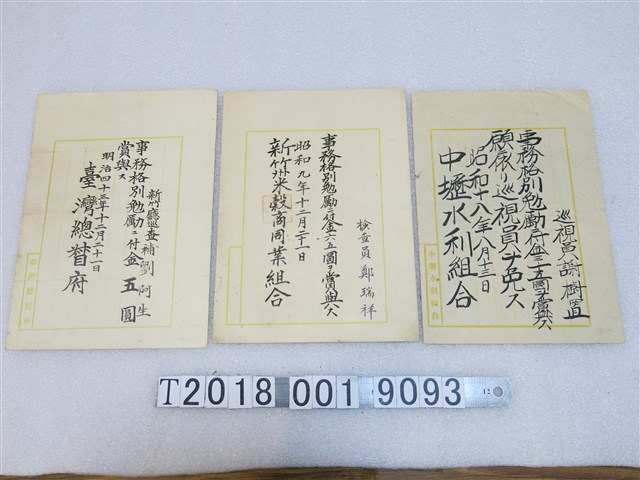 新竹廳巡查補 劉阿生
事務格別勉勵ニ付金五圓
賞與ス
明治四十三年十二月二十一日
臺灣總督府
檢查員 鄭瑞祥
事務格別勉勵ニ付金六五圓ヲ賞與ス
昭和九年十二月二十一日
新竹州米穀商同業組合
巡視員 謝樹置
事務格別勉勵ニ付金三十五圓ヲ賞與ス
願依リ巡視員ヲ免ス
昭和十八年八月十三日
中壢水利組合
T2018 001 9093
12